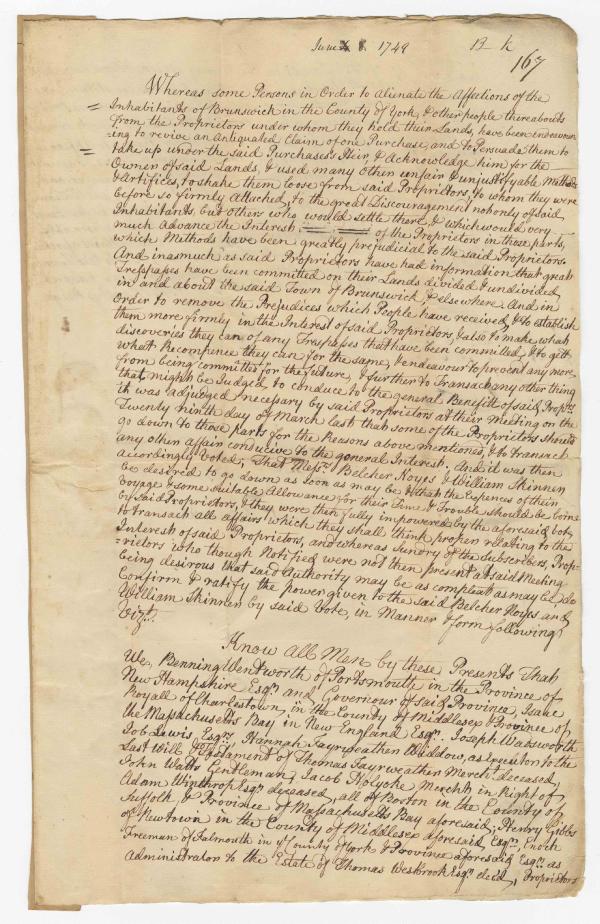 June 8. 1749 B k
167
Whereas some Persons in Order to Alienate the Affections of the
Inhabitants of Brunswick in the County of York, & other people thereabouts
from the Proprietors under whom they hold their Lands, have been endeavour
=ing to revive an Antiquated Claim of one Purchase, and to Persuade them to
take up under the said Purchasers Heir, & Acknowledge him for the
Owner of said Lands, & used many other unfair & unjustifyable Methods
& Artifices, to shake them loose from said Proprietors, to whom they were
before so firmly Attached, to the great Discouragement not only of said
Inhabitants, but others who would settle there, & which would very
much Advance the Interest of the Proprietors in those parts,
which Methods have been greatly prejudicial to the said Proprietors.
And inasmuch as said Proprietors have had information that great
Trespasses have been committed on their Lands divided & undivided
in and about the said Town of Brunswick & elsewhere. And in
Order to remove the Prejudices which People have received, & to establish
them more firmly in the Interest of said Proprietors, & also to make what
discoveries they can of any Trespasses that have been committed, & to gett
what Recompence they can for the same, & endeavour to prevent any more
from being committed for the future, & further to Transact any other thing
that might be Judged to conduce to the general Benefitt of said Proprs.
it was adjudged necessary by said Proprietors at their Meeting on the
Twenty ninth day of March last that some of the Proprietors should
go down to those parts for the Reasons above mentioned, & to transact
any other affair conducive to the general Interest, and it was then
accordingly Voted, That Messrs. Belcher Noyes & William Skinner
be desired to go down as soon as may be & that the Expences of their
Voyage & some suitable Allowance for their Time & Trouble should be borne
by said Proprietors, & they were then fully impowered by the aforesaid vote
to transact all affairs which they shall think proper relating to the
Interest of said Proprietors, and whereas Sundry of the Subscribers, Prop-
=rietors who though Notified were not then present at said Meeting
being desirous that said Authority may be as compleat as may be, do
Confirm & ratify the power given to the said Belcher Noyes and
William Skinner by said Vote, in Manner & form following
Vizt.
Know All Men by these Presents That
We, Benning Wentworth of Portsmouth in the Province of
New Hampshire Esqr. and Governour of said Province, Isaac
Royall of Charlestown in the County of Middlesex & Province of
the Massachusetts Bay in New England Esqr. Joseph Wadsworth
Job Lewis, Esqrs. Hannah Fayrweather Widdow, as Executor to the
Last Will & Testament of Thomas Fayrweather Mercht. deceased,
John Watts Gentleman, Jacob Holyoke Mercht. in Right of
Adam Winthrop Esqr. deceased, all of Boston in the County of
Suffolk & Province of Massachusetts Bay aforesaid; Henry Gibbs
of Newtown in the County of Middlesex aforesaid, Esqr., Enoch
Freeman of Falmouth in ye County of York & Province aforesaid Esqr. as
Administrator to the Estate of Thomas Westbrook Esqr. decd, Proprietors